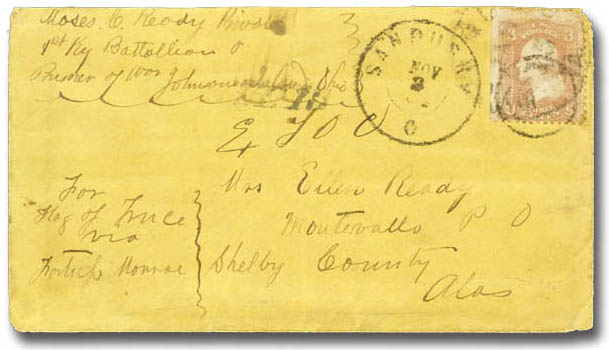 Moses C Ready Private
1st Ky Battallion
Prisner of War Johnsons Island Ohio
SANDUSKY
NOV
3
O
3 3
For
Flag of Truce
via
Fortress Monroe
Mrs Ellen Ready
Montevallo P O
Shelby County
Ala